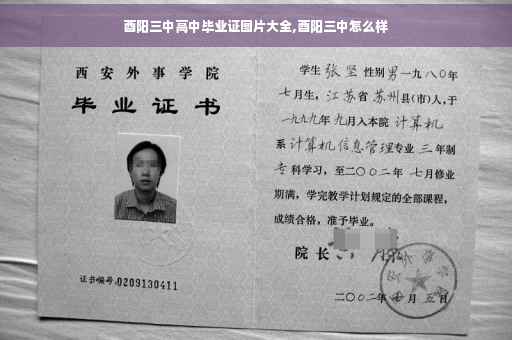 酉阳三中高中毕业证图片大全,酉阳三中怎么样
西安外事学院
毕业证书
证书编号:0209130411
学生 张坚 性别 男 一九八〇年
七月生, 江苏省 苏州县(市)人,于
一九九九年 九月入本院 计算机
系 计算机信息管理专业 三 年制
专科学习,至二〇〇二年 七月修业
期满,学完教学计划规定的全部课程,
成绩合格,准予毕业。
院长
二〇〇二年 七月 五日